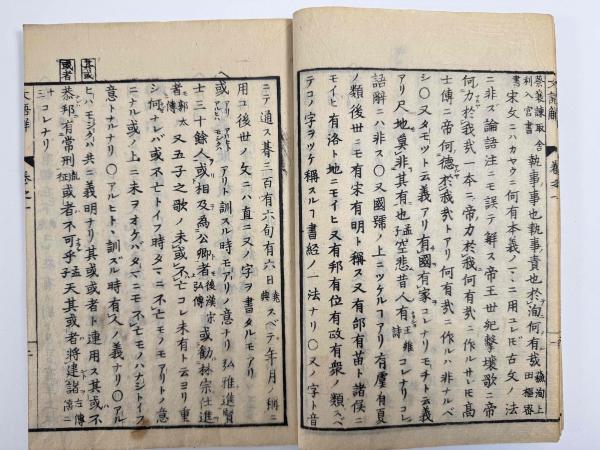 蔡製諫取舎執事事也執事責也於洵何有哉蘇洵上
利入官書田樞密
書宋文ニハカヤウニ何有本義ノマヽニ用ユレ𪜈古文ノ法
ニ非ズ論語注ニモ誤テ解ス帝王世紀撃壌歌ニ帝
何力於我哉一本ニ帝力於我何有哉ニ作ルサレ𪜈高
士傳ニ帝何德於我哉トアリ何有哉ニ作ルハ非ナルベ
シ〇又タモツト云義アリ有國有家コレナリモチト云義
アリ尺地莫非其有也孟子空悲昔人有王維詩コレナリコレ
語解ニハ非ス〇又國號ノ上ニツケルヿアリ有虞有夏
ノ類後世ニモ有宋有明ト稱ス又有部有苗ト諸侯ニ
モイヒ有洛ト地ニモイヒ又有邦有位有政有衆ノ類スベ
テコノ字ヲツケ稱スルヿ書経ノ一法ナリ〇又ノ字ト音
ニテ通ス朞三百有六旬有六日堯典スベテ年月ノ稱ニ
用ユ後世ノ文ニハ直ニ又ノ字ヲ書タルモアリ
或アリアルヒトアルヒハモシクハアリト訓スル時モアリノ意ナリ弘雅進賢
士三十餘人或相及為公卿者後漢宋弘傳或勸林宗仕進
者郭太傳又五子之歌ノ未或不亡コレ未有ト云ヨリ重
シ何ナレバ或不亡トイフ時タマニモノアリトノ意
ニナル或ノ上ニ未ヲオケバタマニモ不亡モノハナシトイフ
意トナルナリ〇アルヒト、訓ズル時有人ノ義ナリ〇アル
ヒハモシクハ共ニ義明ナリ其或或者ト連用ス其或不
恭邦有常刑胤征或者不可乎孟子天其或者將建諸左傳僖二
十三コレナリ
其或
或者